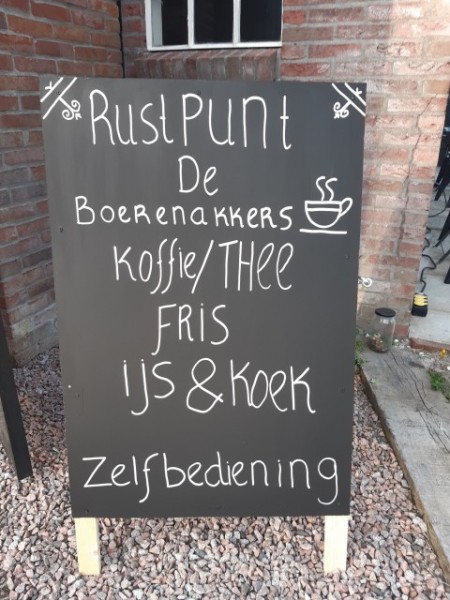 Rustpunt
De
Boerenakkers
Koffie/THee
FRIS
ijs & Koek
Zelfbediening